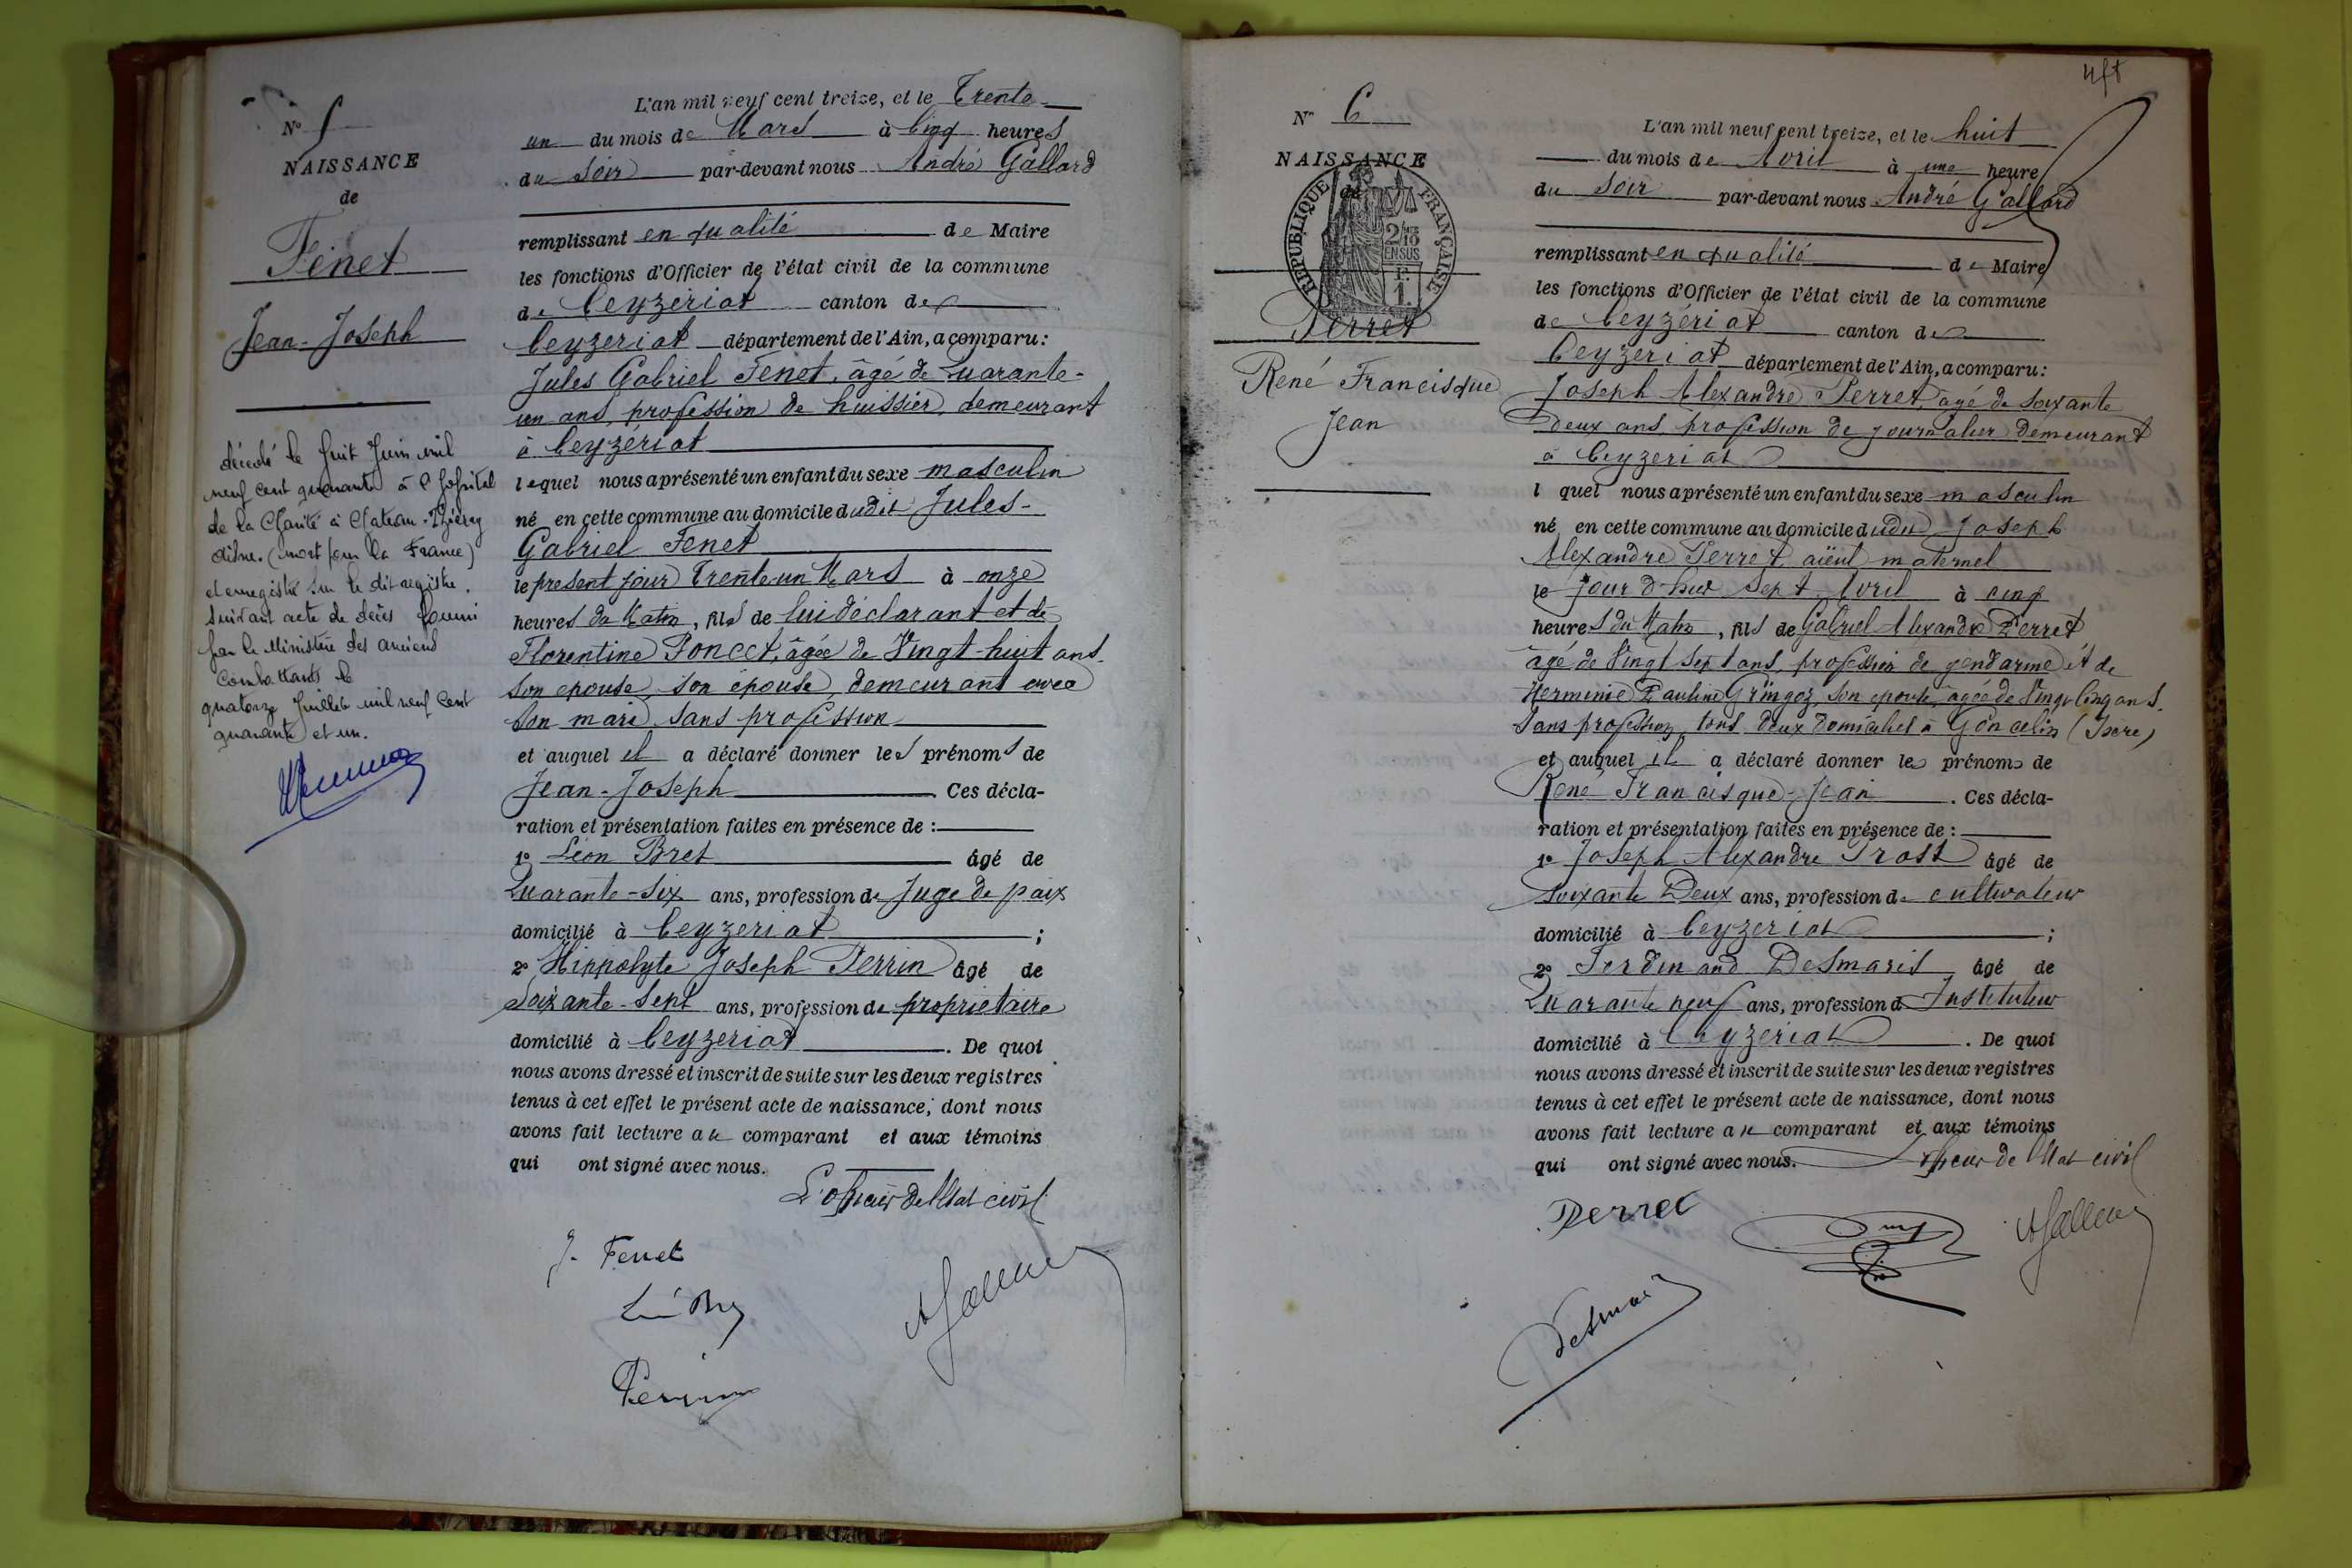 N° 5
NAISSANCE
de
Fenet
Jean-Joseph
décédé le huit Juin mil
neuf cent quarante à l'hopital
de la Charité à Chateau-Thierry
Aisne. (mort pour la France)
et enregistré sur le dit registre.
suivant acte de décès fourni
par le Ministère des anciens
Combattants le
quatorze Juillet mil neuf cent
quarante et un.
L'an mil neuf cent treize, et le Trente
un du mois de Mars à Cinq heures
du Soir par-devant nous André Gallard
remplissant en qualité de Maire
les fonctions d'Officier de l'état civil de la commune
de Ceyzériat canton de
Ceyzeriat département de l'Ain, a comparu:
Jules Gabriel Fenet, âgé de Quarante-
un ans, profession de huissier, demeurant
à Ceyzériat
lequel nous a présenté un enfant du sexe masculin
né en cette commune au domicile dudit Jules-
Gabriel Fenet
le present jour Trente un Mars à onze
heures du Matin, fils de lui déclarant et de
Florentine Poncet, âgée de Vingt-huit ans.
son epouse, son epouse, demeurant avec
son mari, sans profession
et auquel il a déclaré donner les prénoms de
Jean-Joseph. Ces décla-
ration et présentation faites en présence de :
1° Léon Bret âgé de
Quarante-six ans, profession de Juge de paix
domicilié à Ceyzeriat ;
2° Hippolyte Joseph Perrin âgé de
Soixante-Sept ans, profession de propriétaire
domicilié à Ceyzeriat. De quoi
nous avons dressé et inscrit de suite sur les deux registres
tenus à cet effet le présent acte de naissance, dont nous
avons fait lecture au comparant et aux témoins
qui ont signé avec nous.
L'officier de l'Etat civil
J. Fenet
Perrin
4ft
N° 6
NAISSANCE
de
REPUBLIQUE FRANÇAISE
2/10
EN SUS
Perret
René Francisque
Jean
L'an mil neuf cent treize, et le huit
du mois de Avril à une heure
du Soir par-devant nous André Gallard
remplissant en qualité de Maire
les fonctions d'Officier de l'état civil de la commune
de Ceyzériat canton de
Ceyzeriat département de l'Ain, a comparu:
Joseph Alexandre Perret, âgé de soixante
Deux ans, profession de journalier demeurant
à Ceyzeriat
l quel nous a présenté un enfant du sexe masculin
né en cette commune au domicile dudit Joseph
Alexandre Perret, aïeul maternel
le jour d'hier Sept Avril à cinq
heures du Matin, fils de Gabriel Alexandre Perret
âgé de Vingt Sept ans, profession de gendarme et de
Herminie Pauline Gringoz, son epouse, agée de Vingt Cinq ans.
Sans profession, tous deux domiciliés à Goncelin (Isère)
et auquel il a déclaré donner les prénoms de
René Francisque-Jean. Ces décla-
ration et présentation faites en présence de :
1° Joseph Alexandre Prost âgé de
soixante Deux ans, profession de cultivateur
domicilié à Ceyzeriat ;
2° Ferdinand Desmaris âgé de
Quarante neuf ans, profession d Instituteur
domicilié à Ceyzeriat. De quoi
nous avons dressé et inscrit de suite sur les deux registres
tenus à cet effet le présent acte de naissance, dont nous
avons fait lecture au comparant et aux témoins
qui ont signé avec nous. L'officier de l'Etat civil
Perret
Desmaris